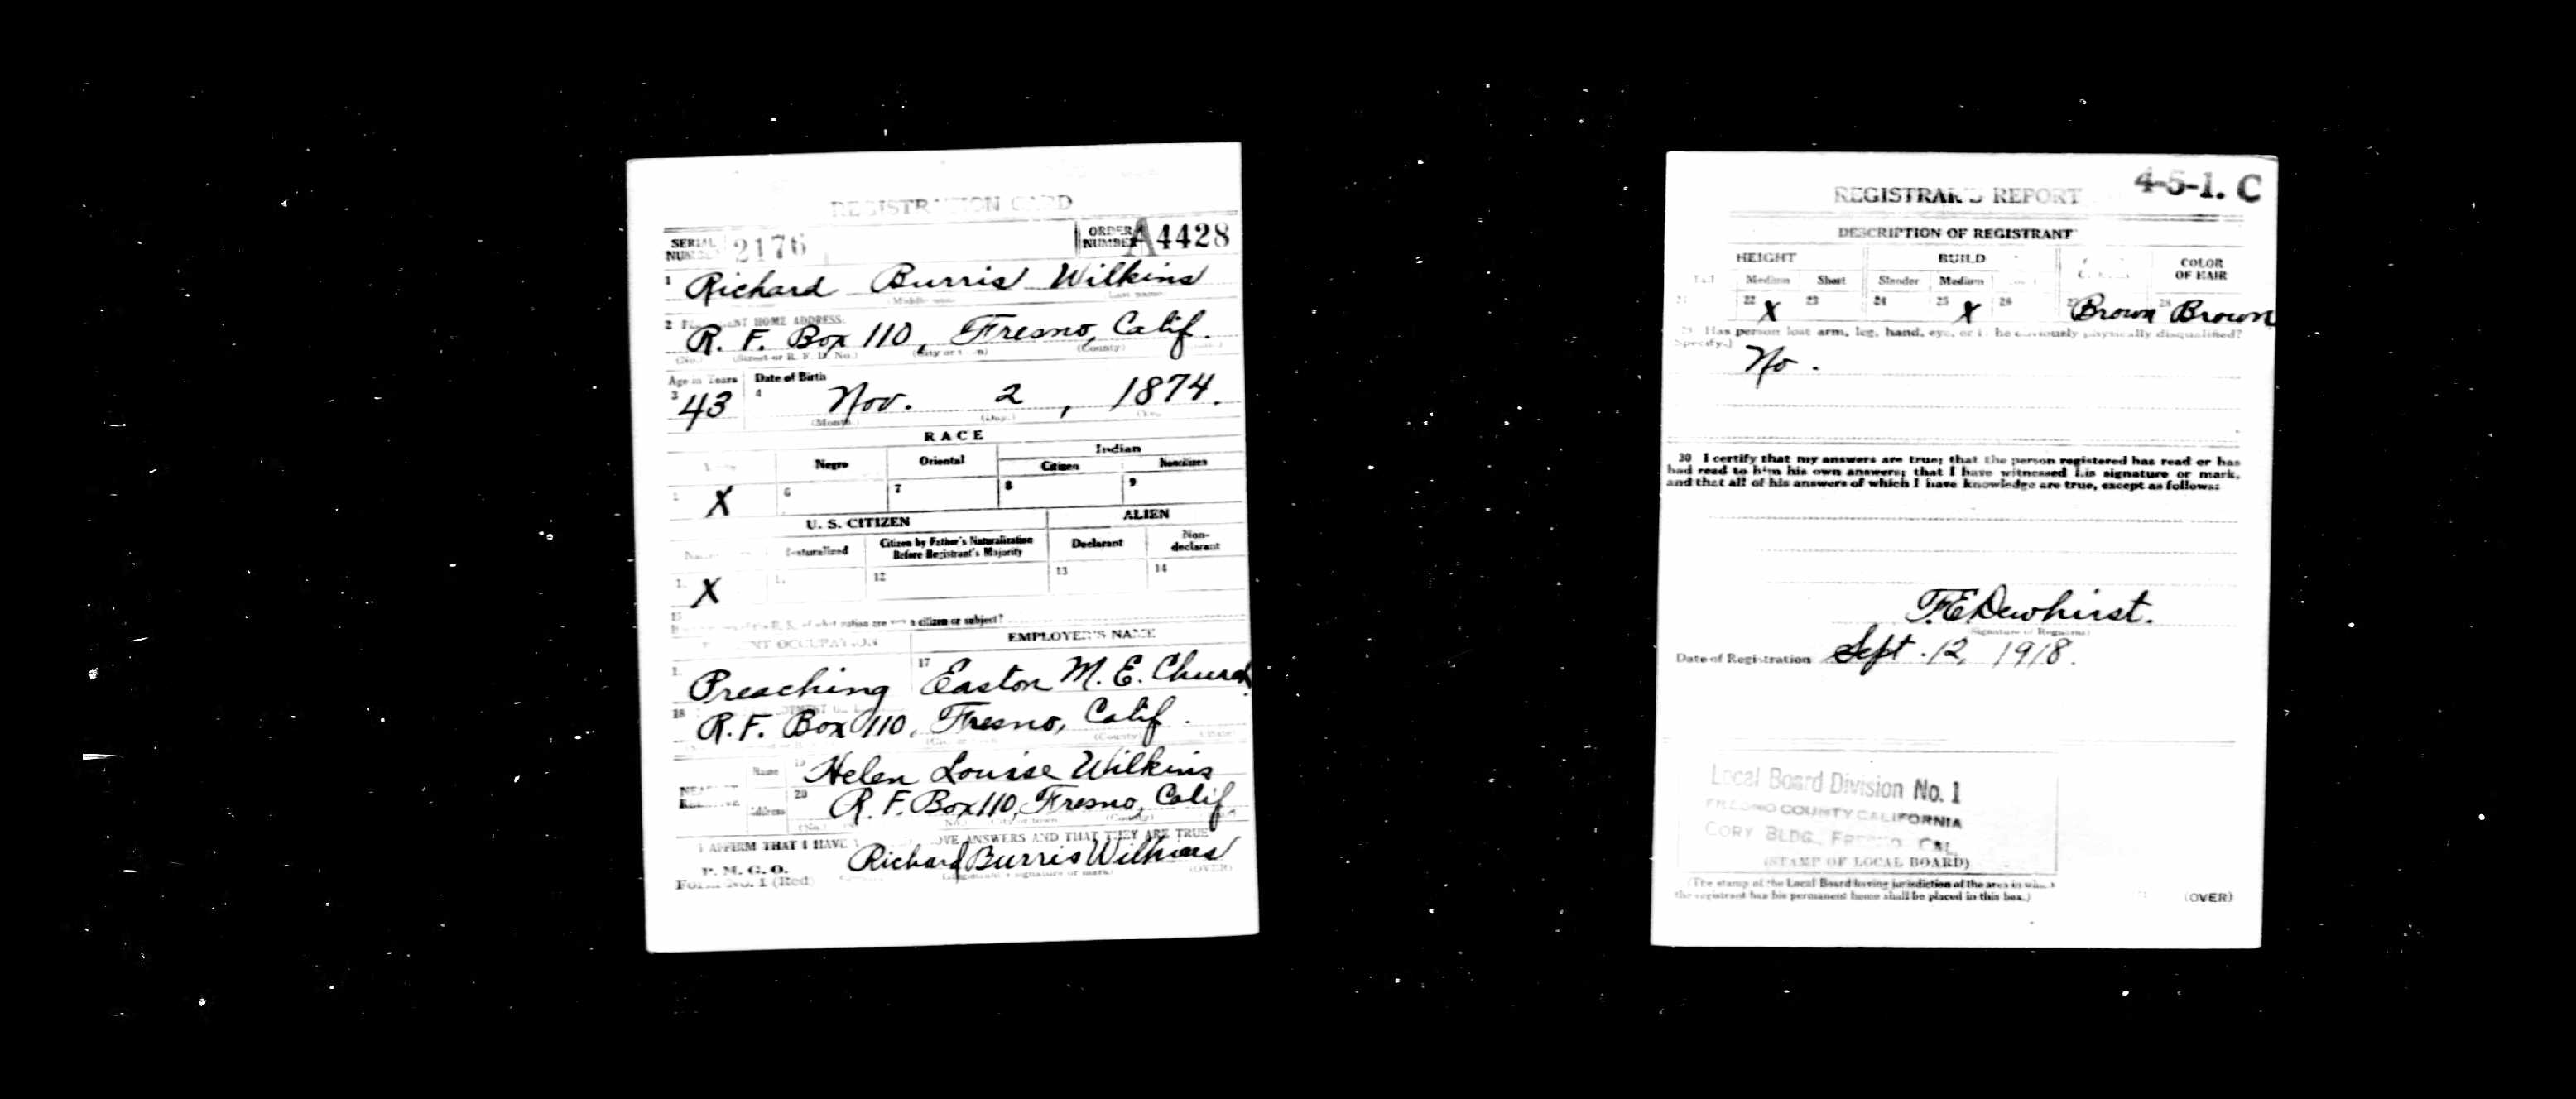 REGISTRATION CARD
SERIAL NUMBER 2176 ORDER NUMBER A4428
1 Richard Burris Wilkins
(Middle name) (Last name)
2 PERMANENT HOME ADDRESS:
R. F. Box 110, Fresno, Calif.
(No.) (Street or R. F. D. No.) (City or town) (County)
Age in Years Date of Birth
3 43 4 Nov. 2, 1874.
(Month.) (Day.)
RACE
Negro Oriental Indian
Citizen Noncitizen
X 6 7 8 9
U. S. CITIZEN ALIEN
Naturalized Citizen by Father's Naturalization Before Registrant's Majority Declarant Non-declarant
X 12 13 14
15
of what nation are you a citizen or subject?
PRESENT OCCUPATION EMPLOYER'S NAME
17
Preaching Easton M. E. Church
18
R. F. Box 110, Fresno, Calif.
(County)
NEAREST RELATIVE Name 19 Helen Louise Wilkins
Address 20 R. F. Box 110, Fresno, Calif.
(No.) (City or town) (County)
I AFFIRM THAT I HAVE VERIFIED ABOVE ANSWERS AND THAT THEY ARE TRUE
P. M. G. O.
Form No. 1 (Red) Richard Burris Wilkins
(Registrant's signature or mark) (OVER)
REGISTRAR'S REPORT 4-5-1. C
DESCRIPTION OF REGISTRANT
HEIGHT BUILD COLOR OF HAIR
Tall Medium Short Slender Medium
21 22 X 23 24 25 X 26 27 Brown 28 Brown
29 Has person lost arm, leg, hand, eye, or is he obviously physically disqualified?
(Specify.)
No.
30 I certify that my answers are true; that the person registered has read or has
had read to him his own answers; that I have witnessed his signature or mark,
and that all of his answers of which I have knowledge are true, except as follows:
F. E. Dewhirst.
(Signature of Registrar)
Date of Registration Sept. 12, 1918.
Local Board Division No. 1
FRESNO COUNTY CALIFORNIA
CORY BLDG., FRESNO, CAL.
(STAMP OF LOCAL BOARD)
(The stamp of the Local Board having jurisdiction of the area in which
the registrant has his permanent home shall be placed in this box.)
(OVER)